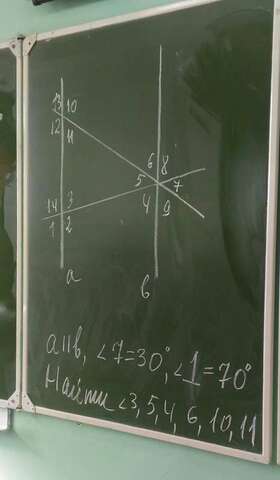 13 10
12 11
6 8
5 7
14 3
4 9
1 2
a
b
a||b, ∠7=30°, ∠1=70°
Найти ∠3, 5, 4, 6, 10, 11